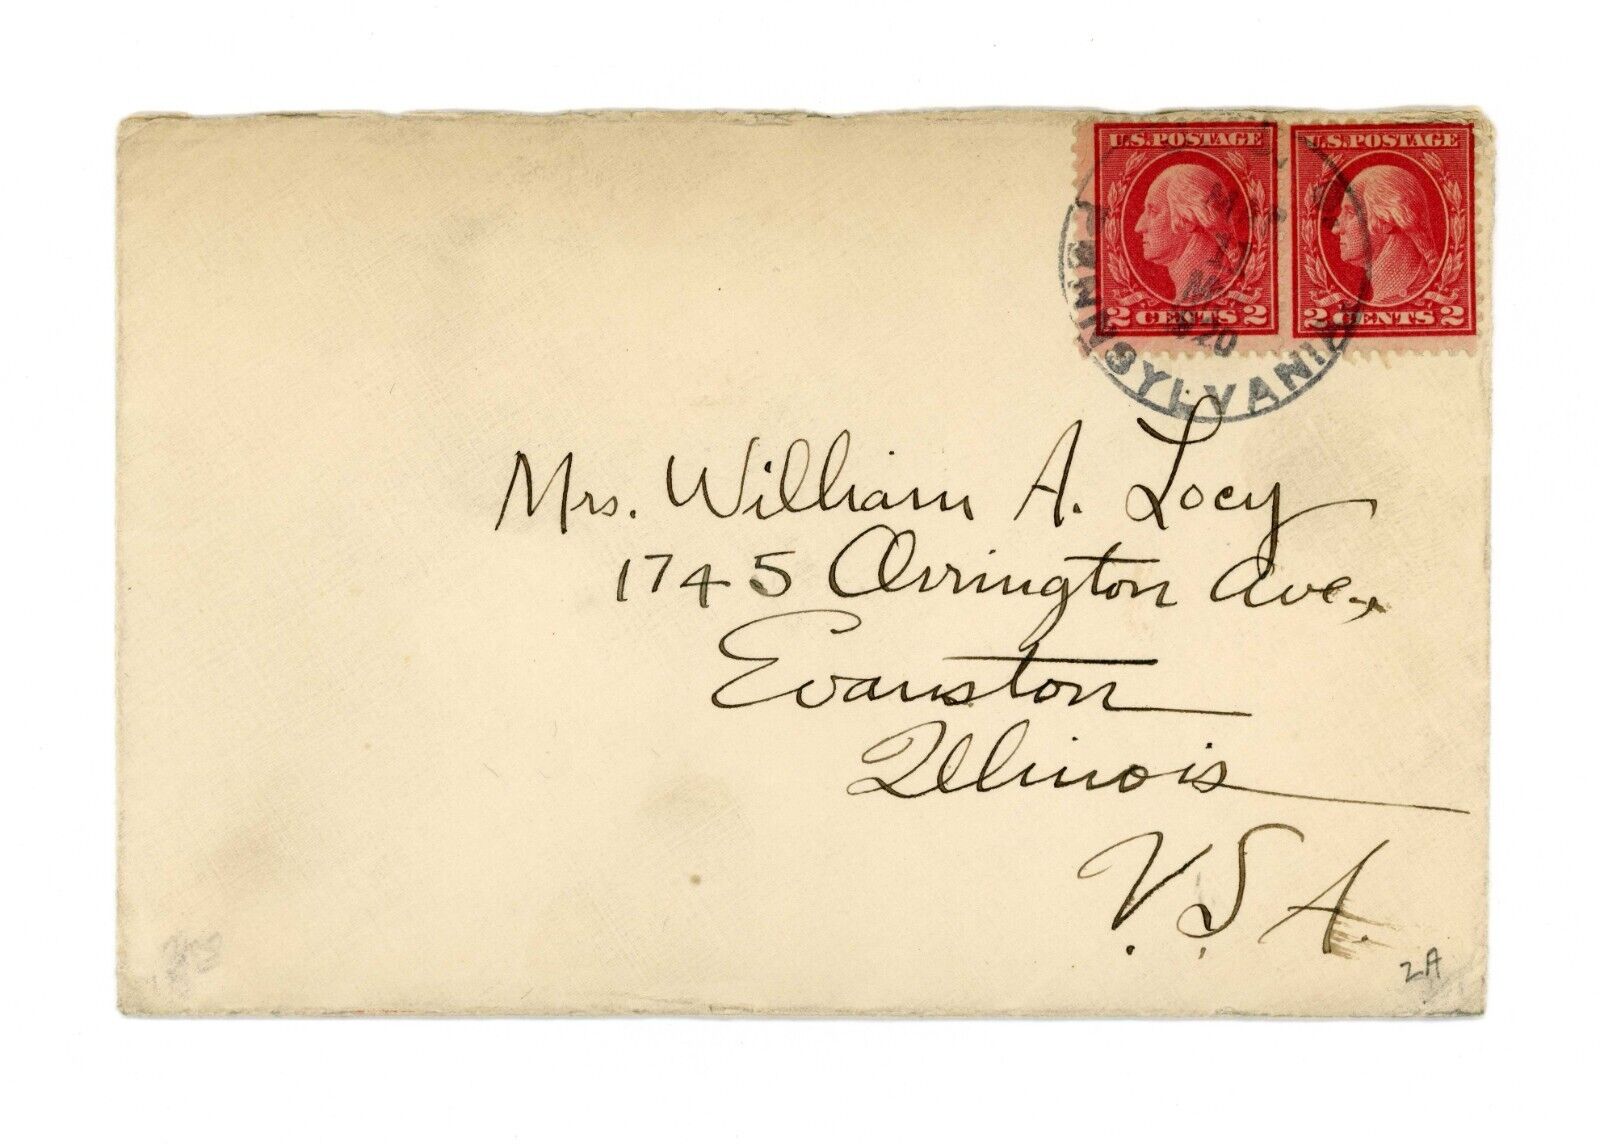 U.S. POSTAGE U.S. POSTAGE
2 CENTS 2 2 CENTS 2
PENNSYLVANIA
1920
Mrs. William A. Locy
1745 Orrington Ave.,
Evanston
Illinois
U.S.A.
2A